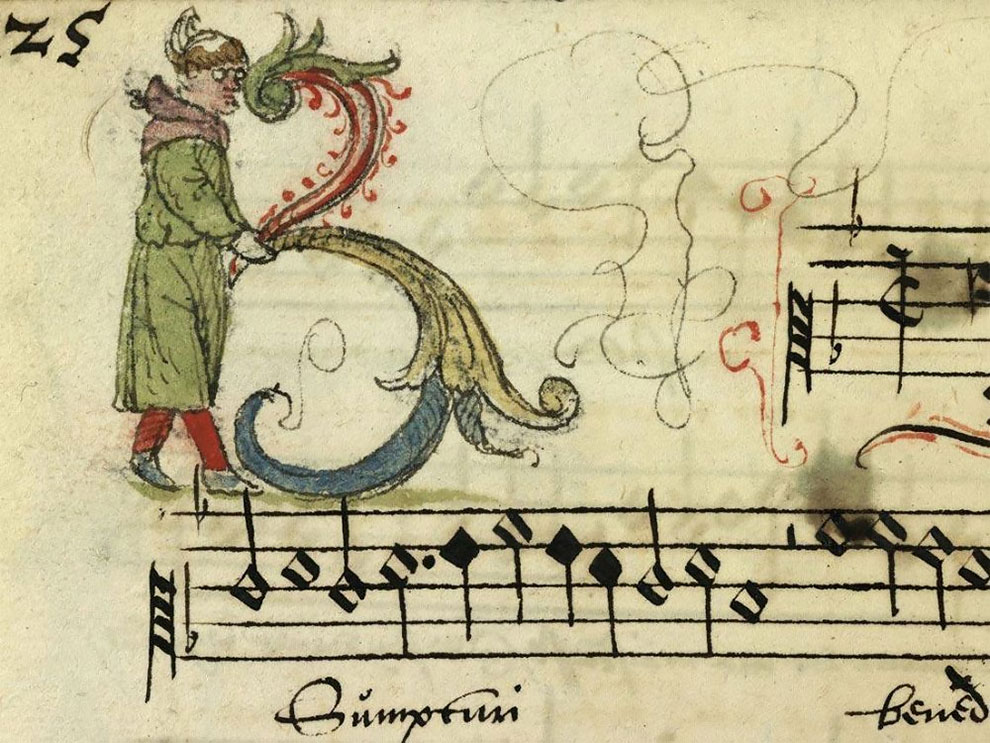 25
B
Sumpturi bened